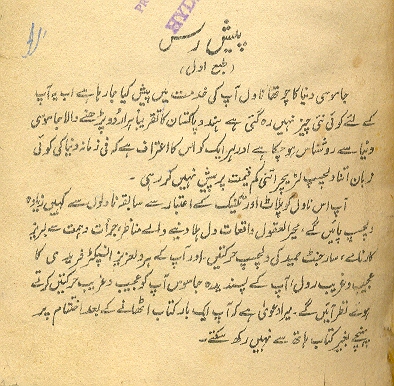 PR
HYD
پیش رس
(طبع اول)
جاسوسی دنیا کا چوتھا ناول آپ کی خدمت میں پیش کیا جا رہا ہے اب یہ آپ
کے لئے کوئی نئی چیز نہیں رہ گئی ہے ہند و پاکستان کا تقریباً ہر اردو پڑھنے والا جاسوسی
دنیا سے روشناس ہو چکا ہے اور ہر ایک کو اس کا اعتراف ہے کہ فی زمانہ دنیا کی کوئی
زبان اتنا دلچسپ لٹریچر اتنی کم قیمت پر پیش نہیں کر رہی۔
آپ اس ناول کو پلاٹ اور تکنیک کے اعتبار سے سابقہ ناولوں سے کہیں زیادہ
دلچسپ پائیں گے۔ محیرالعقول واقعات دل ہلا دینے والے مناظر، جرأت و ہمت سے لبریز
کارنامے، سارجنٹ حمید کی دلچسپ حرکتیں۔ اور آپ کے ہر دلعزیز انسپکٹر فریدی کا
عجیب و غریب رول، آپ کے پسندیدہ جاسوس آپ کو عجیب و غریب حرکتیں کرتے
ہوئے نظر آئیں گے۔ میرا دعویٰ ہے کہ آپ ایک بار کتاب اٹھانے کے بعد اختتام پر
پہنچے بغیر کتاب ہاتھ سے نہیں رکھ سکتے۔